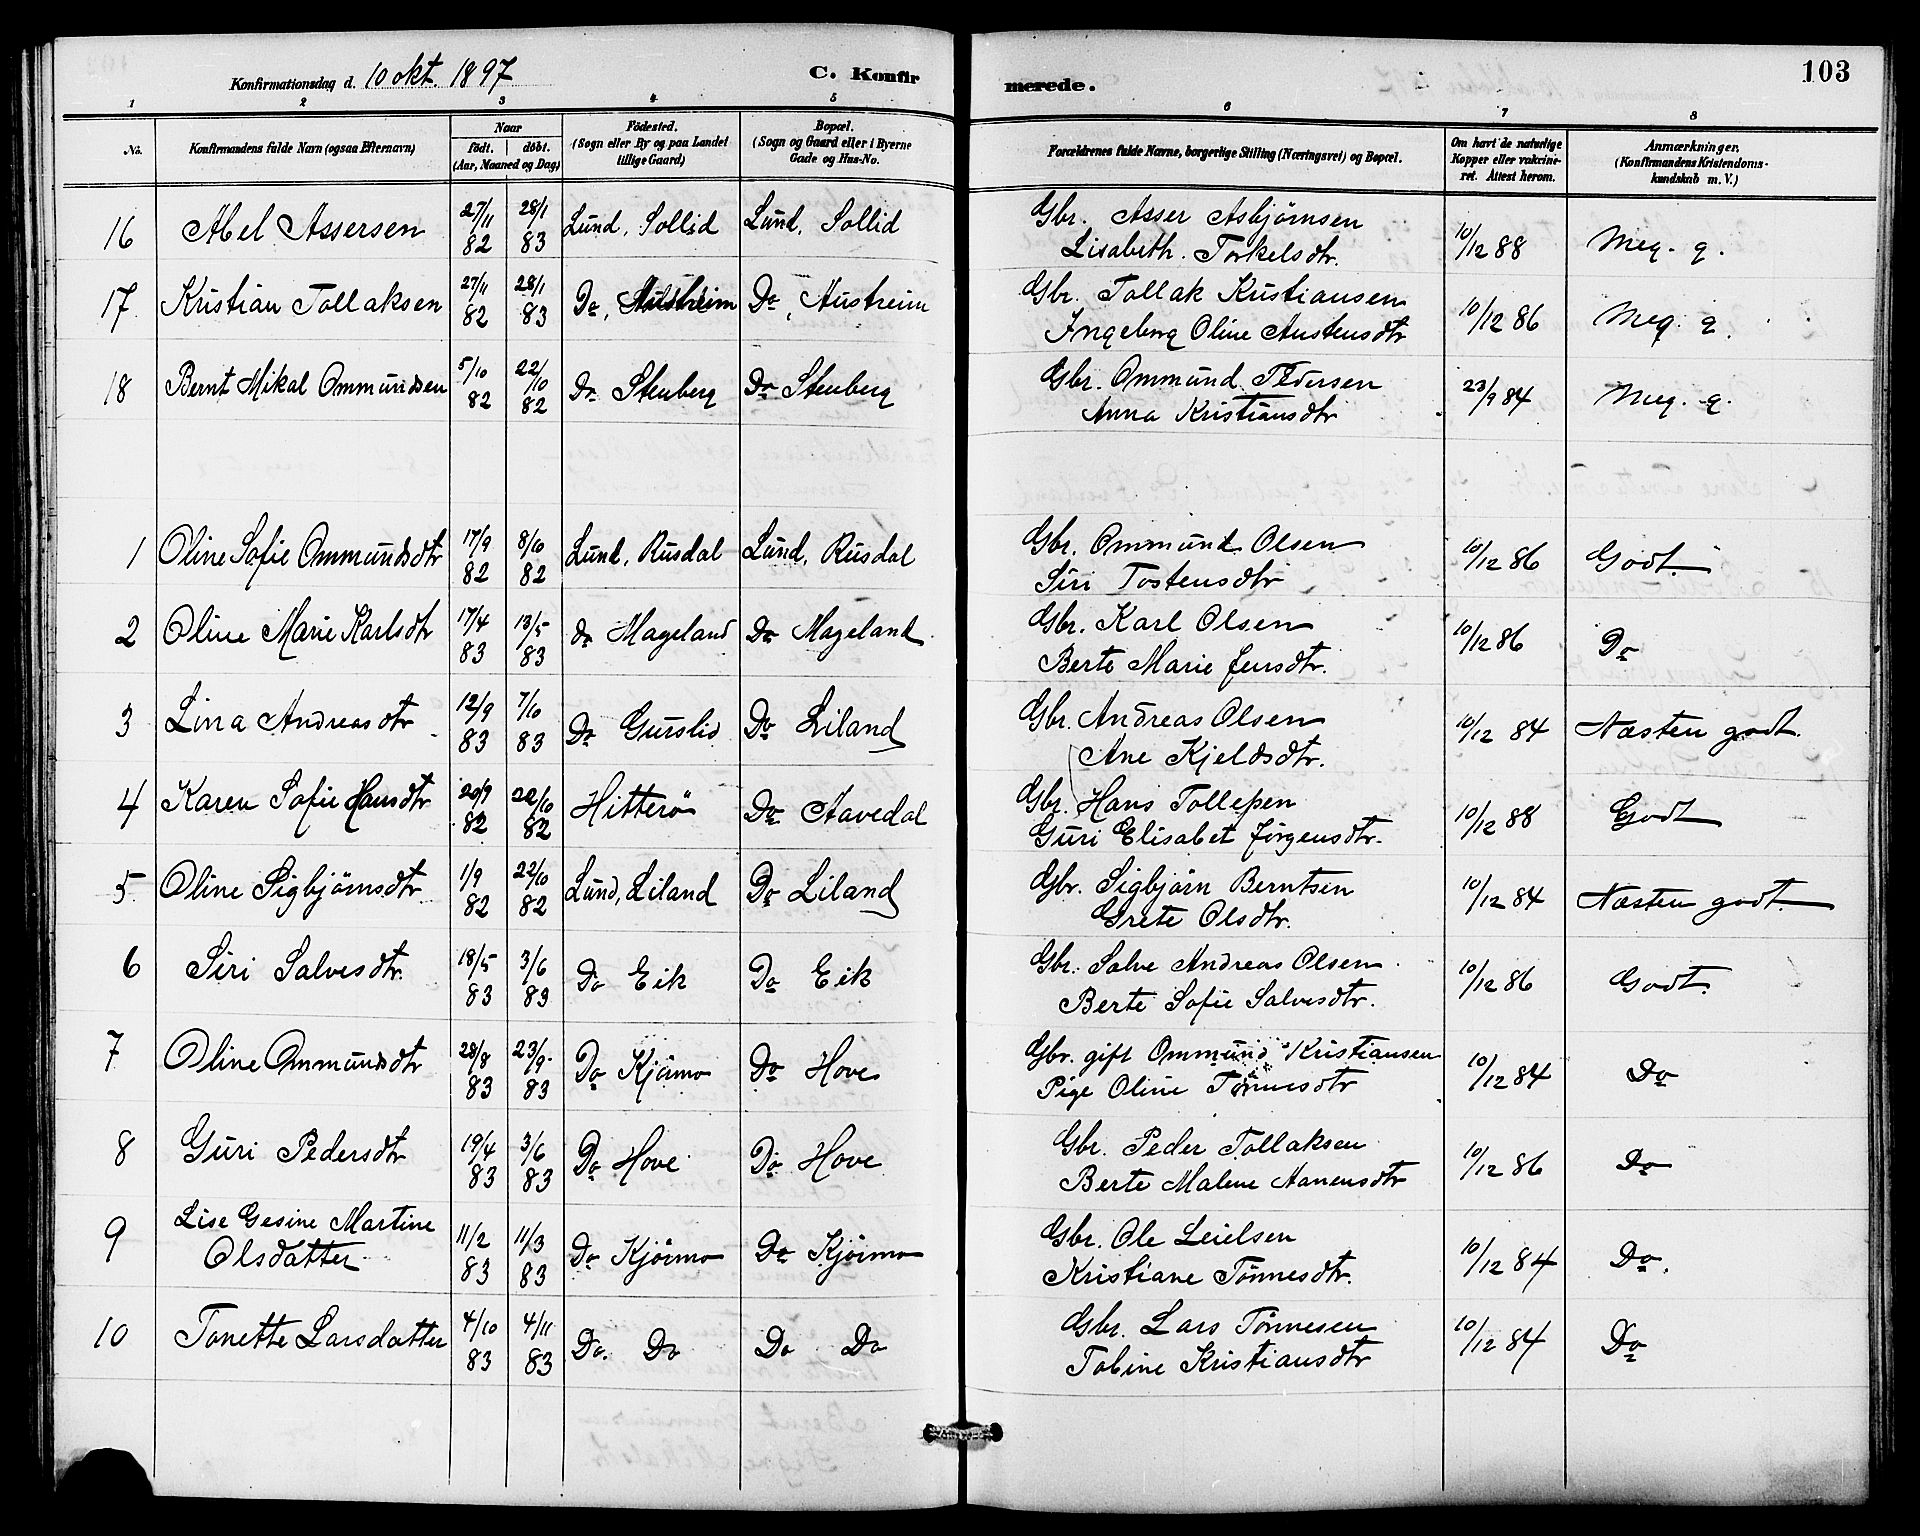 103
Konfirmationsdag d. 10 okt. 1897
C. Konfirmerede.
1 2 3 4 5 6 7 8
No. | Konfirmandens fulde Navn (ogsaa Efternavn) | Naar født. døbt. (Aar, Maaned og Dag) | Fødested. (Sogn eller By og paa Landet tillige Gaard) | Bopæl. (Sogn og Gaard eller i Byerne Gade og Hus-No. | Forældrenes fulde Navne, borgerlige Stilling (Næringsvei) og Bopæl. | Om havt de naturlige Kopper eller vakcineret. Attest herom. | Anmærkninger. (Konfirmandens Kristendomskundskab m. V.)
16 Abel Assersen 27/11 82 28/1 83 Lund, Sollid Lund, Sollid Gbr. Asser Asbjørnsen
Lisabeth Torkelsdtr. 10/12 88 Meg. g.
17 Kristian Tollaksen 27/11 82 28/1 83 Do, Austreim Do, Austreim Gbr. Tollak Kristiansen
Ingeborg Oline Austensdtr 10/12 86 Meg. g.
18 Bernt Mikal Ommundsen 5/10 82 22/10 82 Do Stenberg Do Stenberg Gbr. Ommund Pedersen
Anna Kristiansdtr 23/9 84 Meg. g.
1 Oline Sofie Ommundsdtr 17/9 82 8/10 82 Lund, Rusdal Lund, Rusdal Gbr. Ommund Olsen
Siri Tostensdtr 10/12 86 Godt.
2 Oline Marie Karlsdtr 17/4 83 13/5 83 do Mageland Do Mageland Gbr. Karl Olsen
Berte Marie Jensdtr. 10/12 86 Do
3 Lina Andreasdtr 12/9 83 7/10 83 Do Gurslid Do Liland Gbr. Andreas Olsen
Ane Kjeldsdtr. 10/12 84 Næsten godt.
4 Karen Sofie Hansdtr 20/9 82 22/10 82 Hitterö Do Aavedal Gbr. Hans Tollefsen
Guri Elisabet Jørgensdtr. 10/12 88 Godt
5 Oline Sigbjørnsdtr 1/9 82 22/10 82 Lund, Liland Do Liland Gbr. Sigbjørn Berntsen
Grete Olsdtr. 10/12 84 Næsten godt.
6 Siri Salvesdtr. 18/5 83 3/6 83 Do Eik Do Eik Gbr. Salve Andreas Olsen
Berte Sofie Salvesdtr. 10/12 86 Godt.
7 Oline Ommundsdtr 28/8 83 23/9 83 Do Kjørmo Do Hove Gbr. gift Ommund Kristiansen
Pige Oline Tønnesdtr 10/12 84 Do
8 Guri Pedersdtr 19/4 83 3/6 83 Do Hove Do Hove Gbr. Peder Tollaksen
Berte Malene Aanensdtr 10/12 86 Do
9 Lise Gesine Martine
Olsdatter 11/2 83 11/3 83 Do Kjørmo Do Kjørmo Gbr. Ole Leielsen
Kristiane Tønnesdtr. 10/12 84 Do.
10 Tonette Larsdatter 4/10 83 4/11 83 Do. Do Do Do Gbr. Lars Tønnesen
Tobine Kristiansdtr 10/12 84 Do